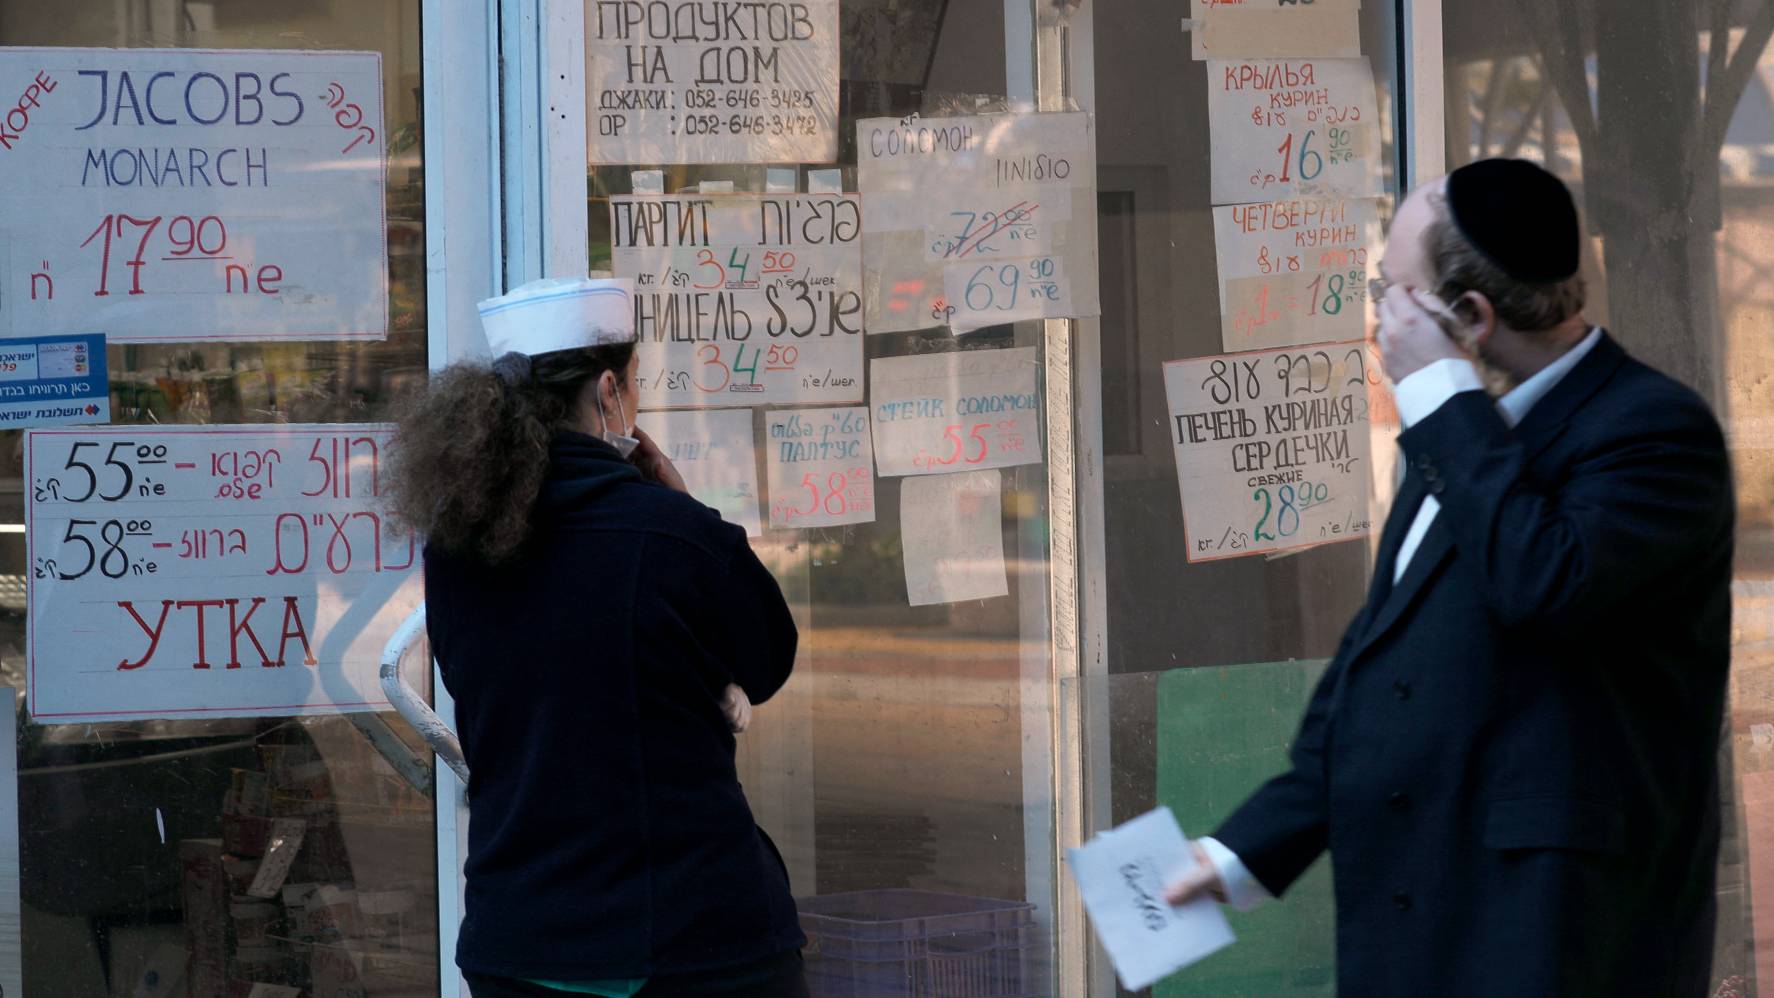 КОФЕ
JACOBS
קפה
MONARCH
17 90
כאן תרוויחו בגדול
תשלובת ישראכרט
55 00 קפוא ברווז
58 00 ברווז כרעים
УТКА
ПРОДУКТОВ
НА ДОМ
ДЖАКИ: 052-646-3425
ОР : 052-646-3472
ПАРГИТ פרגיות
кг./ק"ג 34 50 ש"ח/шек.
НИЦЕЛЬ שניצל
ק"ג 34 50 ש"ח/шек.
СОЛОМОН
סולומון
72 90
69 90 ש"ח
ПАЛТУС
58 00
СТЕЙК СОЛОМОН
55 00
КРЫЛЬЯ
КУРИН
כנפיים עוף
16 90
ЧЕТВЕРТИ
КУРИН
עוף
18 90
כבד עוף
ПЕЧЕНЬ КУРИНАЯ
СЕРДЕЧКИ
СВЕЖИЕ טרי
кг./ק"ג 28 90 ש"ח/шек